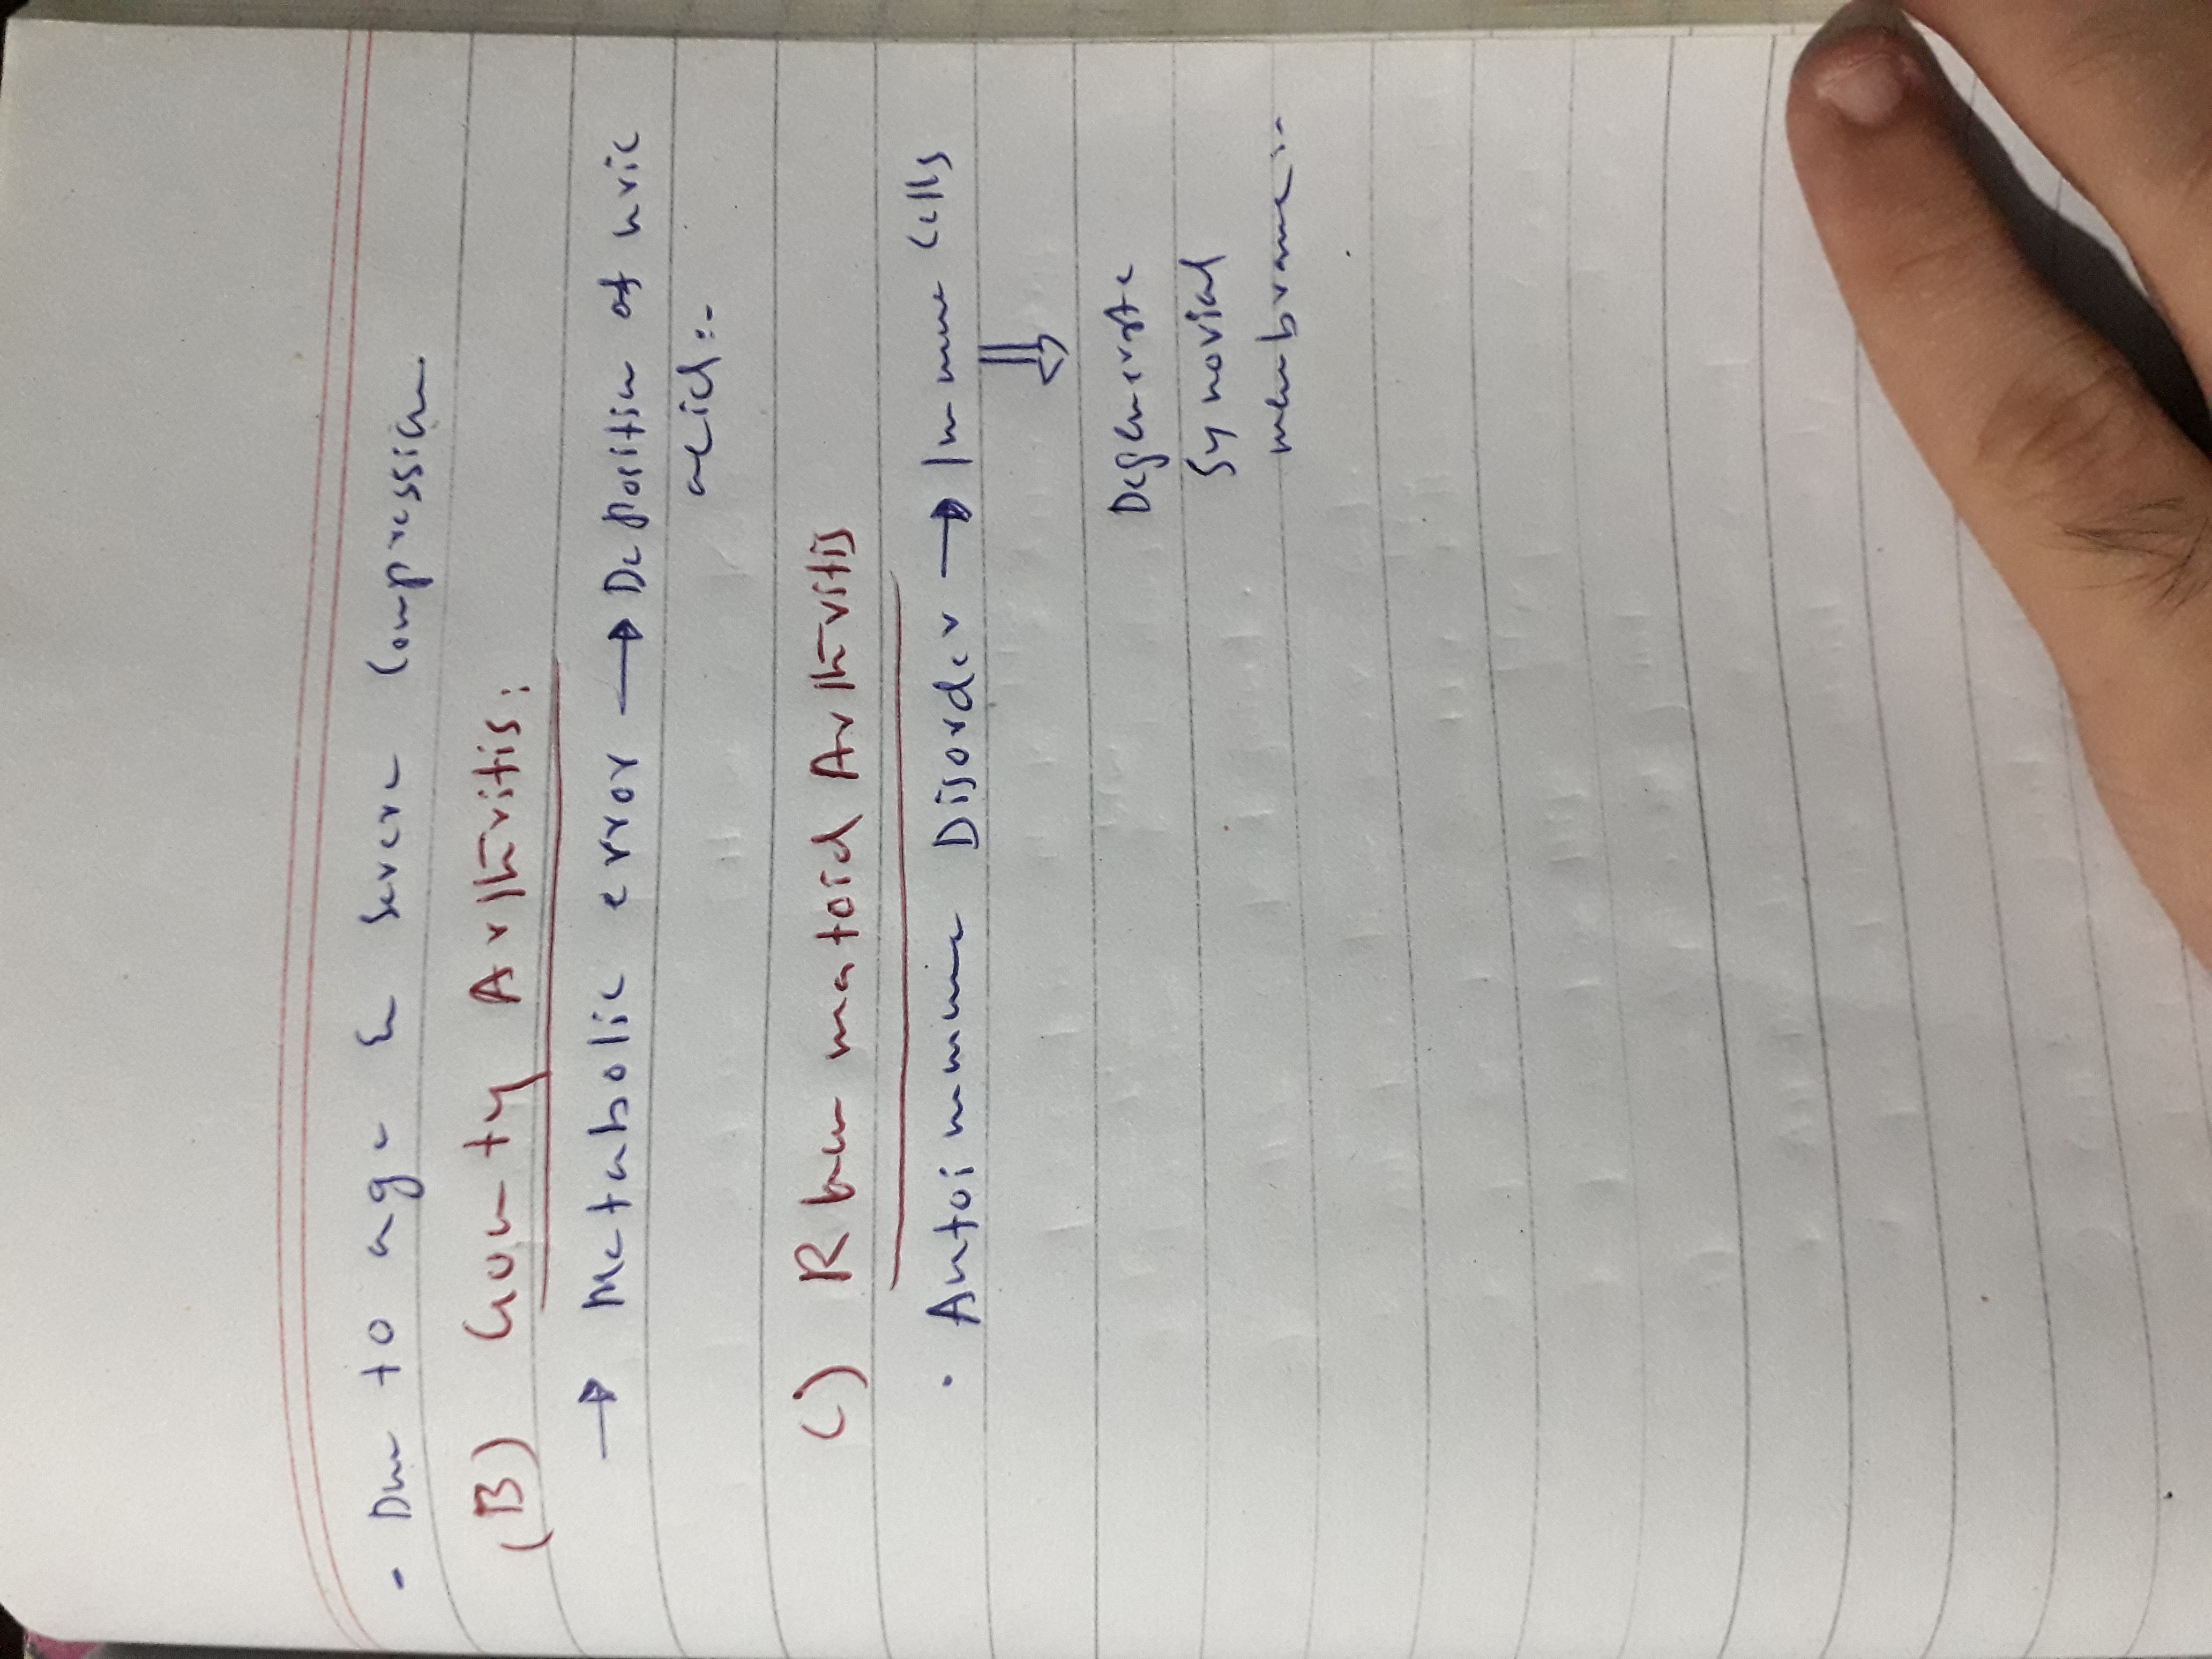 - Due to age & severe Compression.
(B) Gouty Arthritis:
→ Metabolic error → Deposition of uric
acid:-
C) Rheumatoid Arthritis
· Autoimmune Disorder → Immune Cells
⇓
Degenerate
Synovial
membrane:-